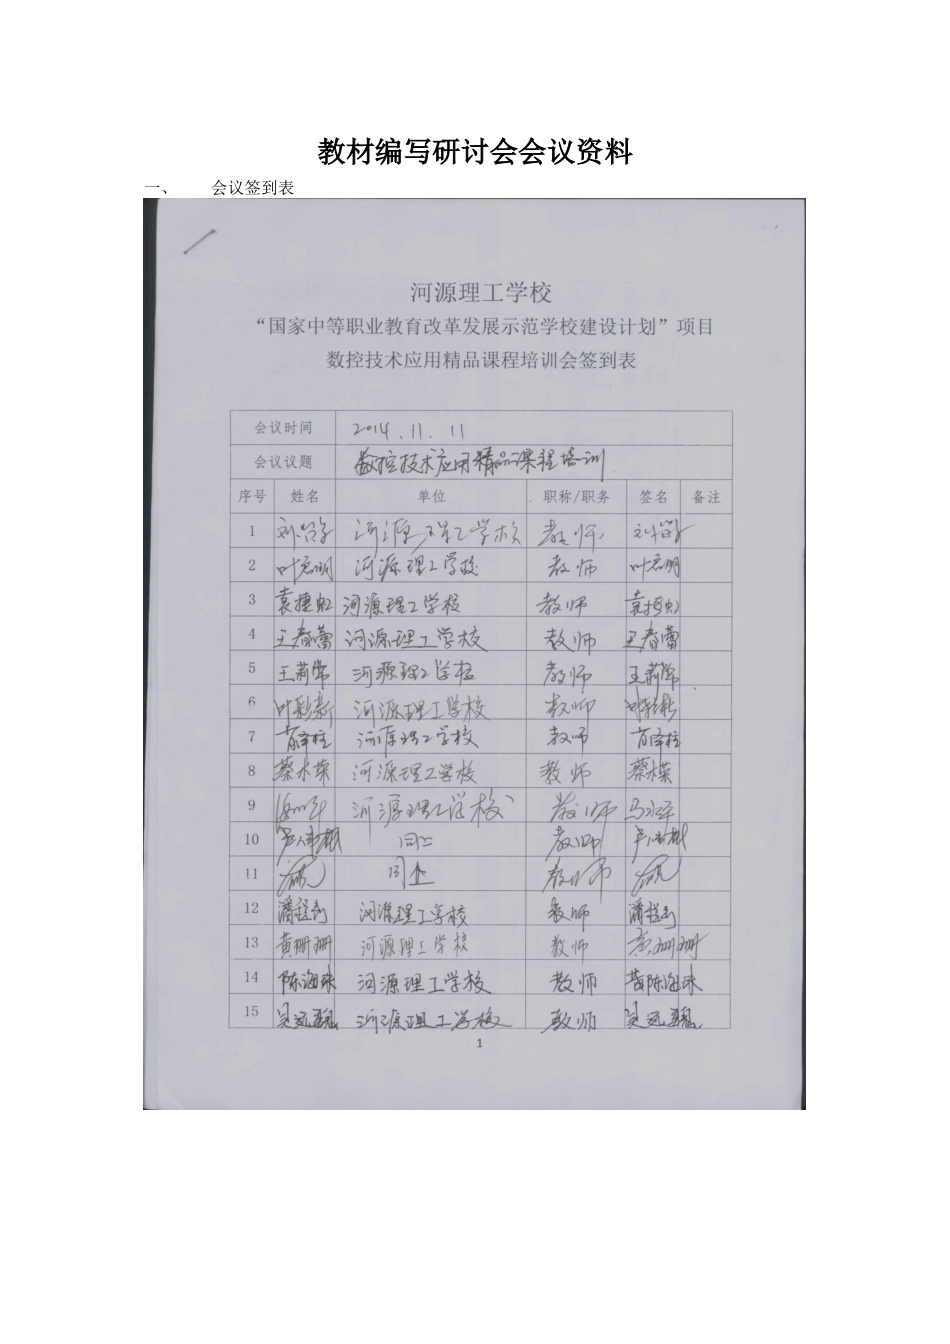 教材编写研讨会会议资料
一、 会议签到表
河源理工学校
“国家中等职业教育改革发展示范学校建设计划”项目
数控技术应用精品课程培训会签到表
会议时间 2014.11.11
会议议题 数控技术应用精品课程培训
序号 姓名 单位 职称/职务 签名 备注
1 河源理工学校 教师
2 叶君明 河源理工学校 教师 叶君明
3 袁捷虹 河源理工学校 教师 袁捷虹
4 王春蕾 河源理工学校 教师 王春蕾
5 王莉常 河源理工学校 教师 王莉常
6 叶彩新 河源理工学校 教师 叶彩新
7 河源理工学校 教师
8 蔡水荣 河源理工学校 教师 蔡水荣
9 河源理工学校 教师
10 同上 教师
11 同上 教师
12 河源理工学校 教师
13 黄珊珊 河源理工学校 教师 黄珊珊
14 陈海珠 河源理工学校 教师 陈海珠
15 河源理工学校 教师
1